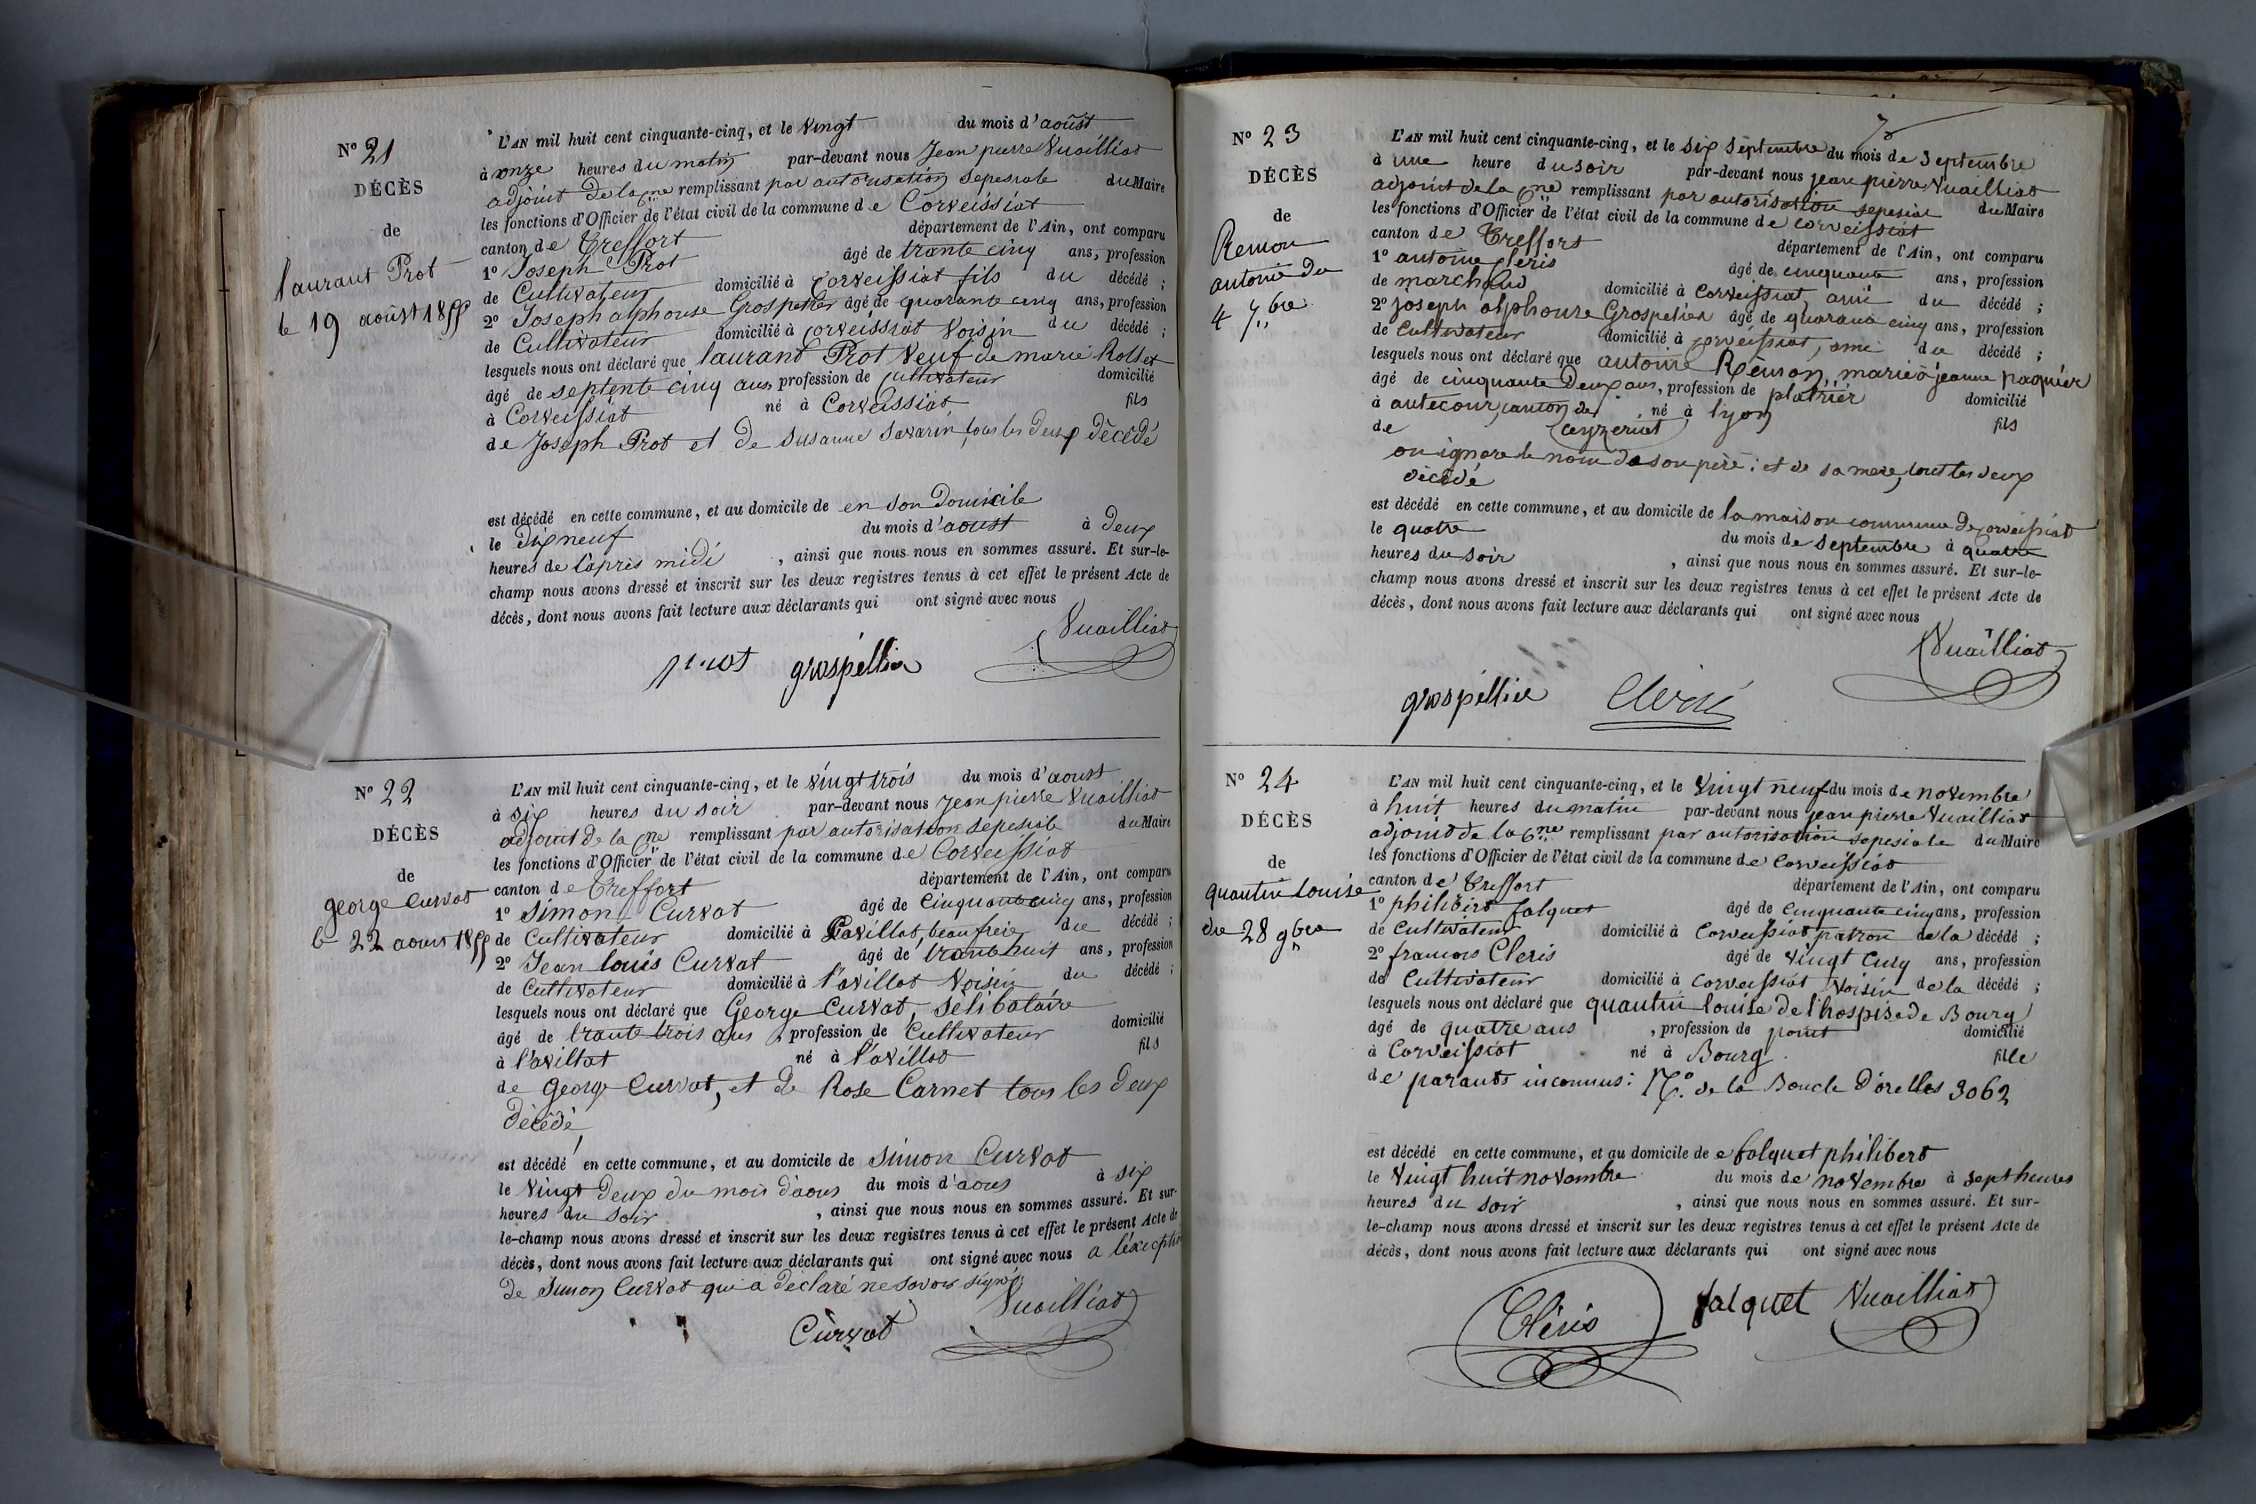 N° 21
DÉCÈS
de
laurant Prot
le 19 aoûst 1855
L'AN mil huit cent cinquante-cinq, et le vingt du mois d'aoûst
à onze heures du matin par-devant nous Jean pierre Vuailliat
adjoint de la Cne remplissant par autorisation sepesiale du Maire
les fonctions d'Officier de l'état civil de la commune de Corveissiat
canton de Treffort département de l'Ain, ont comparu
1° Joseph Prot âgé de trante cinq ans, profession
de Cultivateur domicilié à Corveissiat fils du décédé ;
2° Joseph alphonse Grospellier âgé de quarante cinq ans, profession
de Cultivateur domicilié à Corveissiat Voisin du décédé ;
lesquels nous ont déclaré que laurand Prot Veuf de marie Rollet
âgé de septente cinq ans, profession de Cultivateur domicilié
à Corveissiat né à Corveissiat fils
de Joseph Prot et de Susanne Savarin, tous les deux décédé
est décédé en cette commune, et au domicile de en son Domicile
le dix neuf du mois d'aoust à deux
heures de l'après midi , ainsi que nous nous en sommes assuré. Et sur-le-
champ nous avons dressé et inscrit sur les deux registres tenus à cet effet le présent Acte de
décès, dont nous avons fait lecture aux déclarants qui ont signé avec nous
Vuailliat
prot grospellier
N° 22
DÉCÈS
de
george Curvat
le 22 aous 1855
L'AN mil huit cent cinquante-cinq, et le vingt trois du mois d'aoust
à six heures du soir par-devant nous Jean pierre Vuailliat
adjoint de la Cne remplissant par autorisation sepesiale du Maire
les fonctions d'Officier de l'état civil de la commune de Corveissiat
canton de Treffort département de l'Ain, ont comparu
1° Simon Curvat âgé de Cinquante cinq ans, profession
de Cultivateur domicilié à Lavillat, beau frère du décédé ;
2° Jean louis Curvat âgé de trante huit ans, profession
de Cultivateur domicilié à l'avillat Voisin du décédé ;
lesquels nous ont déclaré que George Curvat, Selibataire
âgé de trante trois ans , profession de Cultivateur domicilié
à l'avillat né à l'avillat fils
de George Curvat, et de Rose Carnet tous les deux
décédé
est décédé en cette commune, et au domicile de Simon Curvat
le Vingt Deux du mois d'aous du mois d'aous à six
heures du soir , ainsi que nous nous en sommes assuré. Et sur-
le-champ nous avons dressé et inscrit sur les deux registres tenus à cet effet le présent Acte de
décès, dont nous avons fait lecture aux déclarants qui ont signé avec nous a l'exception
de Simon Curvat qui a déclaré ne savoir signé
Vuailliat
Curvat
N° 23
DÉCÈS
de
Remon
antoine du
4 7bre
L'AN mil huit cent cinquante-cinq, et le six septembre du mois de Septembre
à une heure du soir par-devant nous jean pierre Vuailliat
adjoint de la Cne remplissant par autorisation sepesial du Maire
les fonctions d'Officier de l'état civil de la commune de Corveissiat
canton de Treffort département de l'Ain, ont comparu
1° antoine Cléris âgé de cinquante ans, profession
de marchand domicilié à Corveissiat, ami du décédé ;
2° Joseph alphonse Grospelier âgé de quarante cinq ans, profession
de Cultivateur domicilié à Corveissiat, ami du décédé ;
lesquels nous ont déclaré que antoine Remon, marie à jeanne paquier
âgé de cinquante Deux ans, profession de platrier domicilié
à autecour, canton de né à lyon fils
de Ceyzeriat
on ignore le nom de son père : et de sa mere, tout les deux
décédé
est décédé en cette commune, et au domicile de la maison commune de Corveissiat
le quatre du mois de Septembre à quatre
heures du soir , ainsi que nous nous en sommes assuré. Et sur-le-
champ nous avons dressé et inscrit sur les deux registres tenus à cet effet le présent Acte de
décès, dont nous avons fait lecture aux déclarants qui ont signé avec nous
Vuailliat
grospellier Cléris
N° 24
DÉCÈS
de
quantin Louise
du 28 9bre
L'AN mil huit cent cinquante-cinq, et le Vingt neuf du mois de novembre
à huit heures du matin par-devant nous jean pierre Vuailliat
adjoind de la Cne remplissant par autorisation sepesiale du Maire
les fonctions d'Officier de l'état civil de la commune de Corveissiat
canton de Treffort département de l'Ain, ont comparu
1° philibert falquet âgé de Cinquante cinq ans, profession
de Cultivateur domicilié à Corveissiat patron de la décédé ;
2° francois Cleris âgé de Vingt Cinq ans, profession
de Cultivateur domicilié à Corveissiat Voisin de la décédé ;
lesquels nous ont déclaré que quantin louise de l'hospise de Bourg
âgé de quatre ans , profession de point domicilié
à Corveissiat né à Bourg fille
de parants inconnus : N.° de la Boucle d'orelles 3062
est décédé en cette commune, et au domicile de falquet philibert
le Vingt huit novembre du mois de novembre à sept heures
heures du soir , ainsi que nous nous en sommes assuré. Et sur-
le-champ nous avons dressé et inscrit sur les deux registres tenus à cet effet le présent Acte de
décès, dont nous avons fait lecture aux déclarants qui ont signé avec nous
Cléris falquet Vuailliat